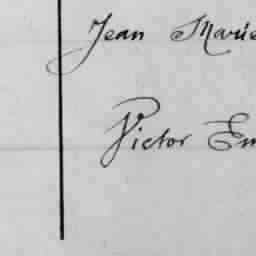 Jean Marie
Victor Em